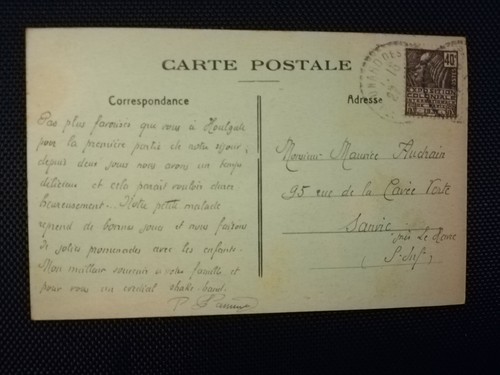 CARTE POSTALE
Correspondance
Adresse
40
Pas plus favorisés que vous à Houlgate
pour la première partie de notre séjour,
depuis deux jours nous avons un temps
délicieux et cela parait vouloir durer
heureusement... Notre petit malade
reprend de bonnes joues et nous faisons
de jolies promenades avec les enfants.
Mon meilleur souvenir à votre famille et
pour vous un cordial shake-hand.
Monsieur Maurice Auchain
95 rue de la Cavée Verte
Sanvic
près Le Havre
(S. Inf.)